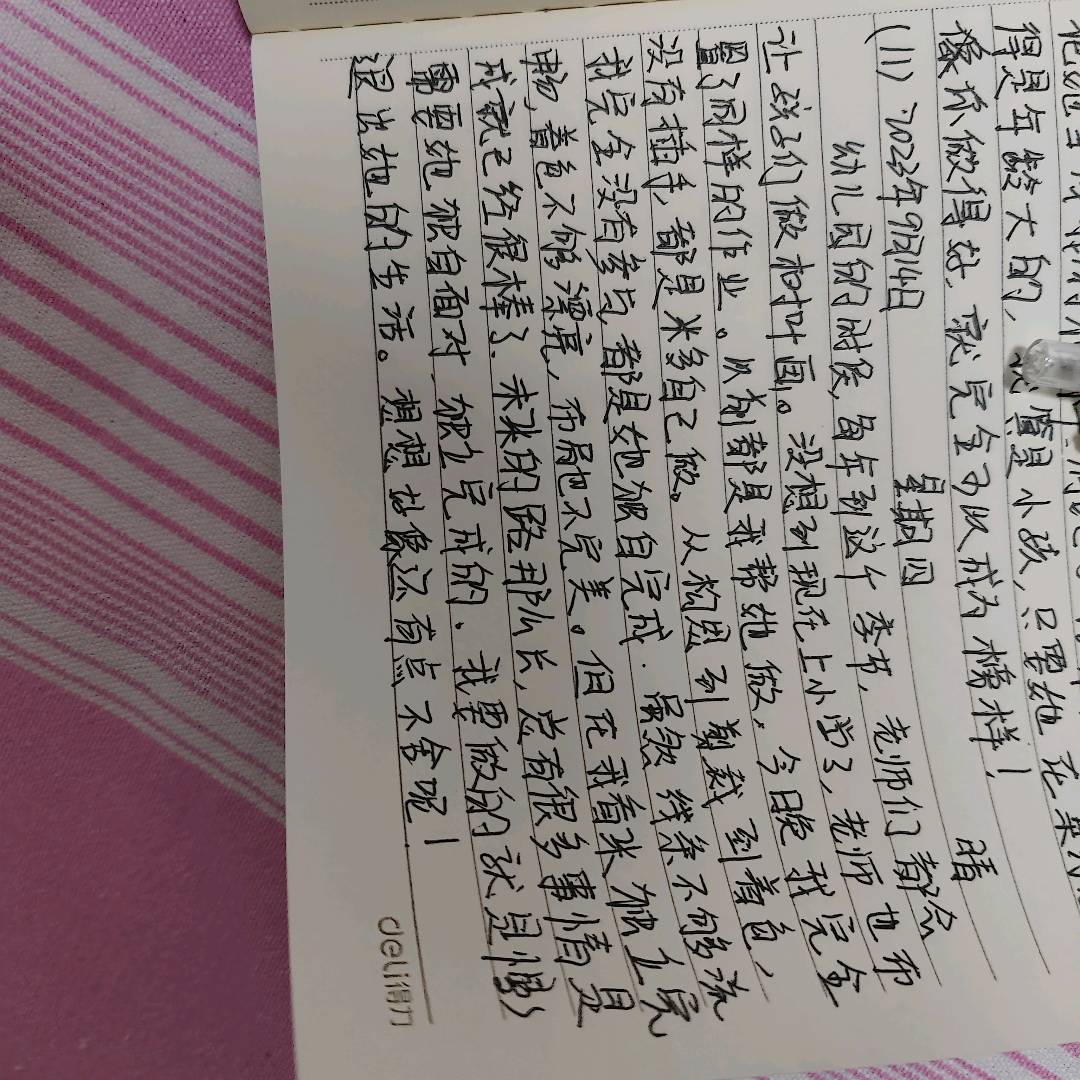 得是年龄大的,
质是小孩,只要她在某
像你做得好,就完全可以成为榜样!
(11) 2023年9月14日 星期四 晴
幼儿园的时候,每年到这个季节,老师们都会
让孩子们做树叶画。没想到现在上小学了,老师也布
置了同样的作业。以前都是我帮她做,今晚我完全
没有插手,都是米多自己做。从构思到剪裁到着色,
我完全没有参与,都是她独自完成.虽然线条不够流
畅,着色不够漂亮,布局也不完美。但在我看来独立完
成就已经很棒了.未来的路那么长,总有很多事情是
需要她独自面对.独立完成的.我要做的就是慢慢
退出她的生活。想想好像还有点不舍呢!
deli得力